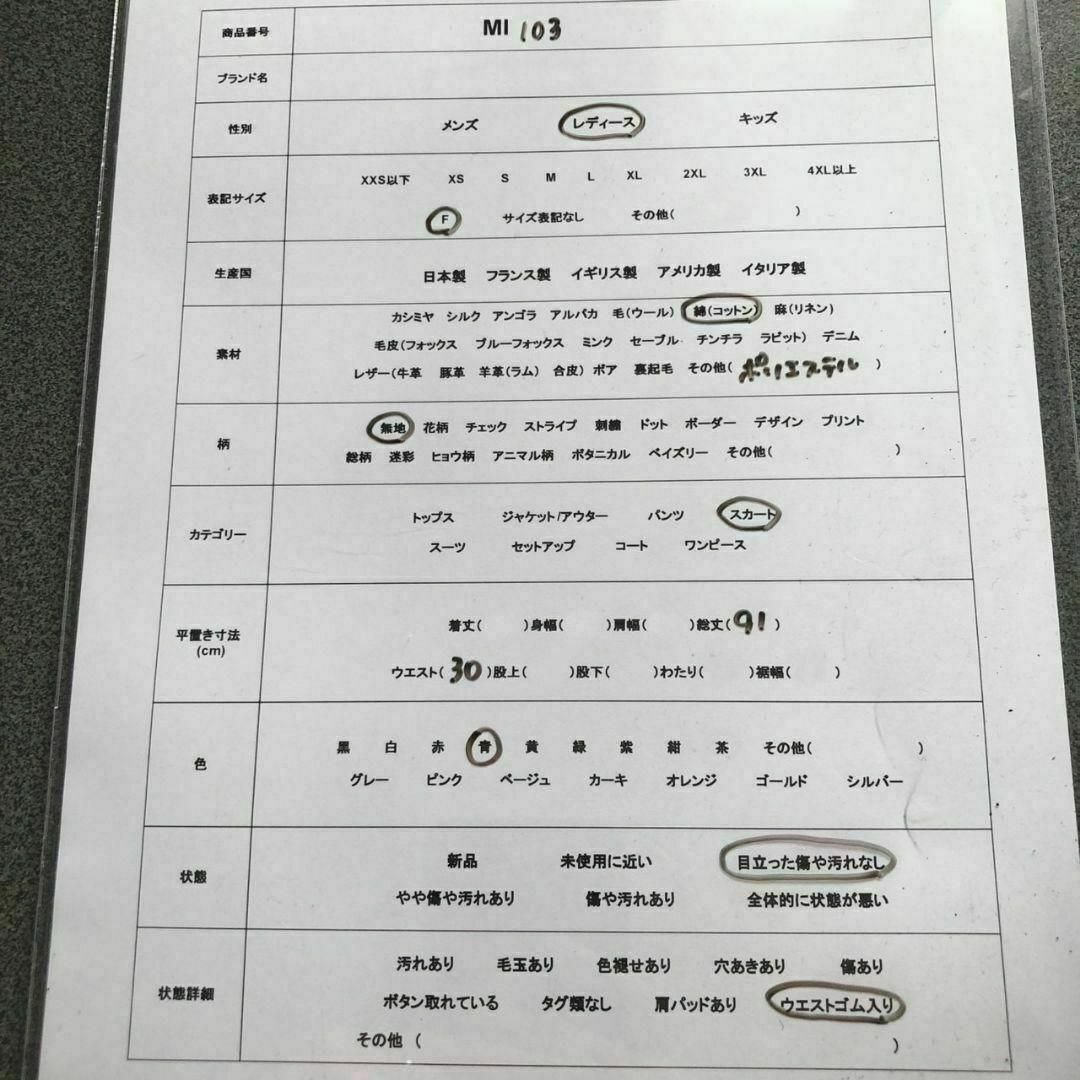 商品番号 MI 103
ブランド名
性別 メンズ レディース キッズ
表記サイズ
XXS以下 XS S M L XL 2XL 3XL 4XL以上
F サイズ表記なし その他( )
生産国 日本製 フランス製 イギリス製 アメリカ製 イタリア製
素材
カシミヤ シルク アンゴラ アルパカ 毛(ウール) 綿(コットン) 麻(リネン)
毛皮(フォックス ブルーフォックス ミンク セーブル チンチラ ラビット) デニム
レザー(牛革 豚革 羊革(ラム) 合皮) ボア 裏起毛 その他( ポリエステル )
柄
無地 花柄 チェック ストライプ 刺繍 ドット ボーダー デザイン プリント
総柄 迷彩 ヒョウ柄 アニマル柄 ボタニカル ペイズリー その他( )
カテゴリー
トップス ジャケット/アウター パンツ スカート
スーツ セットアップ コート ワンピース
平置き寸法
(cm)
着丈( )身幅( )肩幅( )総丈( 91 )
ウエスト( 30 )股上( )股下( )わたり( )裾幅( )
色
黒 白 赤 青 黄 緑 紫 紺 茶 その他( )
グレー ピンク ベージュ カーキ オレンジ ゴールド シルバー
状態
新品 未使用に近い 目立った傷や汚れなし
やや傷や汚れあり 傷や汚れあり 全体的に状態が悪い
状態詳細
汚れあり 毛玉あり 色褪せあり 穴あきあり 傷あり
ボタン取れている タグ類なし 肩パッドあり ウエストゴム入り
その他 ( )